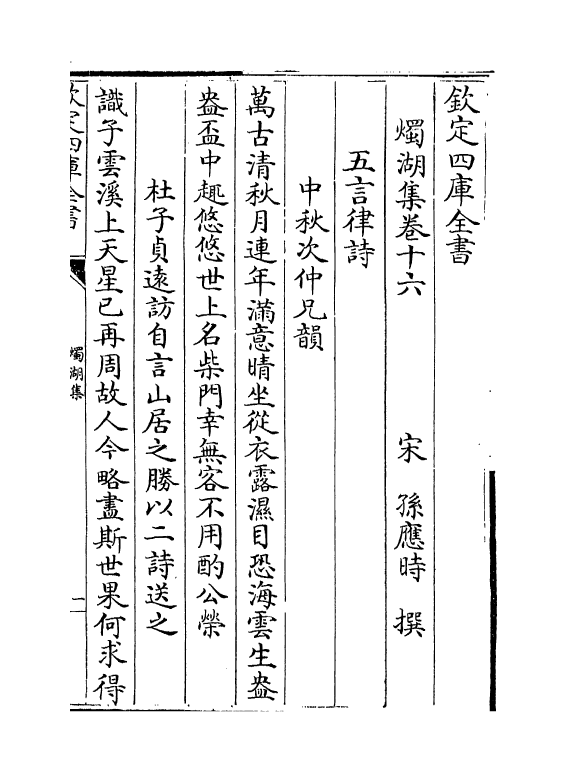 欽定四庫全書
燭湖集卷十六
宋 孫應時 撰
五言律詩
中秋次仲兄韻
萬古清秋月連年滿意晴坐從衣露濕目恐海雲生盎
盎盃中趣悠悠世上名柴門幸無客不用酌公榮
杜子貞遠訪自言山居之勝以二詩送之
識子雲溪上天星已再周故人今略盡斯世果何求得
欽定四庫全書
燭湖集